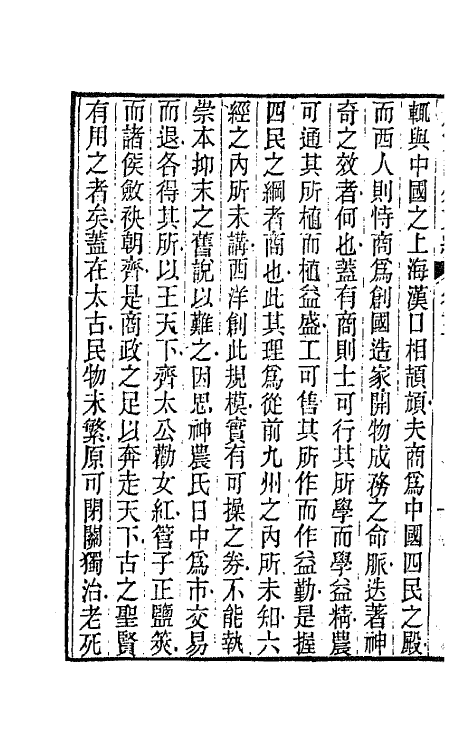 輒與中國之上海漢口相頡頏夫商爲中國四民之殿
而西人則恃商爲創國造家開物成務之命脈迭著神
奇之效者何也蓋有商則士可行其所學而學益精農
可通其所植而植益盛工可售其所作而作益勤是握
四民之綱者商也此其理爲從前九州之內所未知六
經之內所未講西洋創此規模實有可操之劵不能執
崇本抑末之舊說以難之因思神農氏日中爲市交易
而退各得其所以王天下齊太公勸女紅管子正鹽筴
而諸侯斂袂朝齊是商政之足以奔走天下古之聖賢
有用之者矣蓋在太古民物未繁原可閉關獨治老死